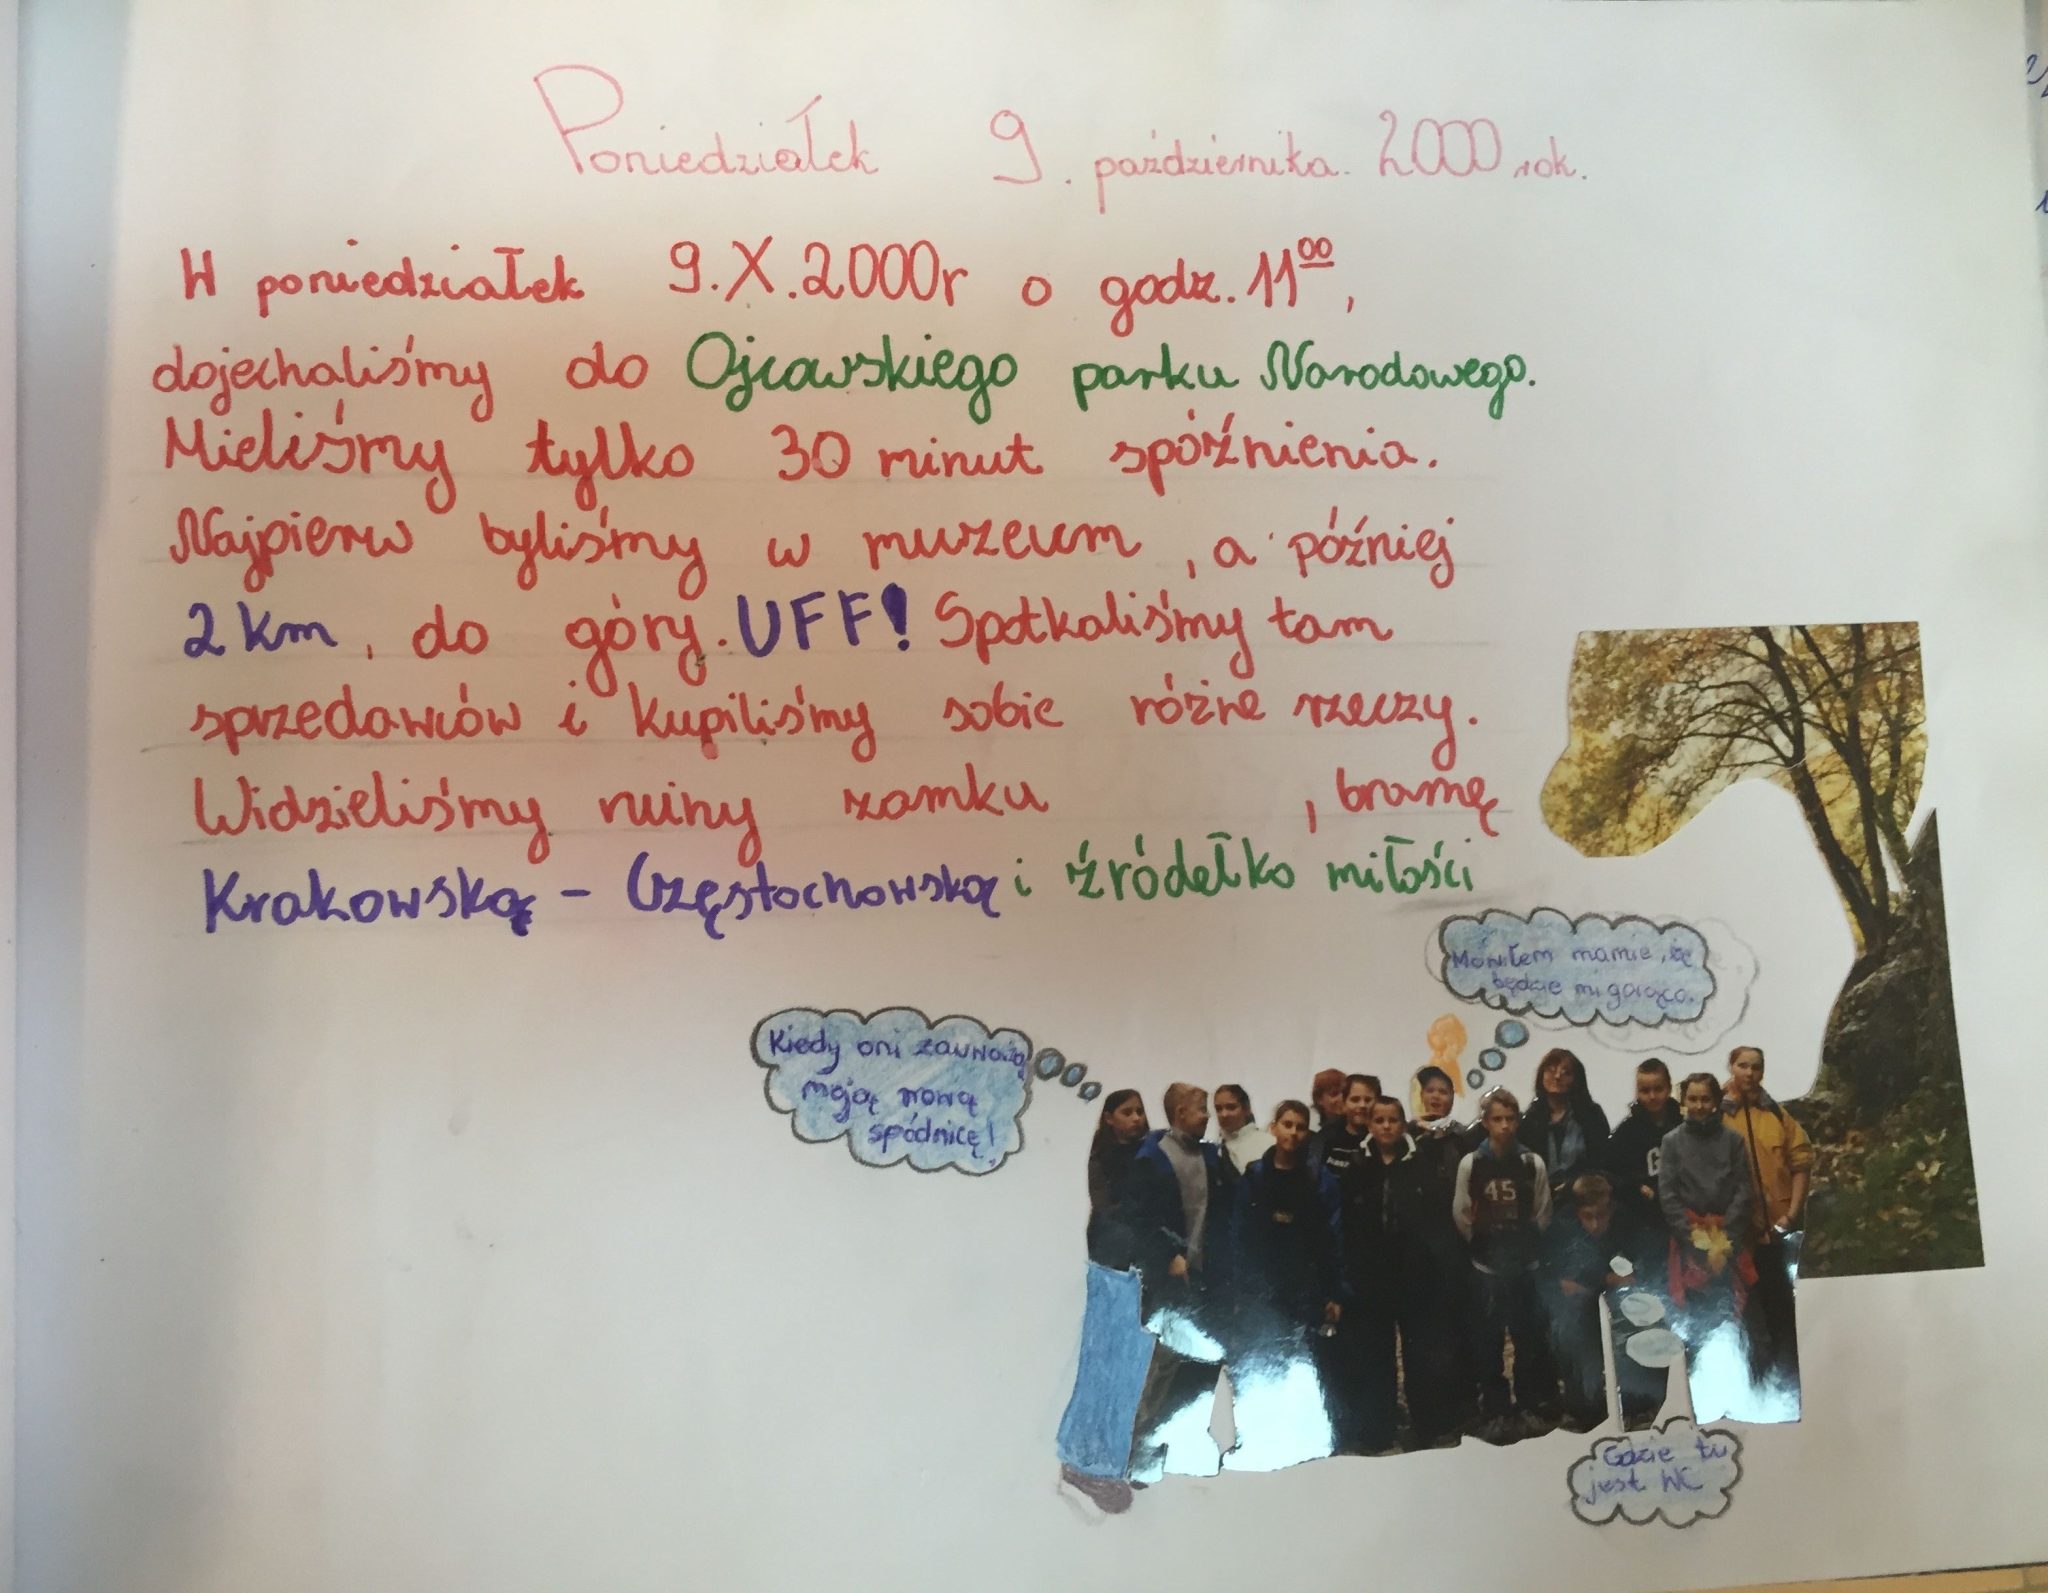 Poniedziałek 9. października. 2000 rok.
W poniedziałek 9.X.2000r o godz. 11⁰⁰,
dojechaliśmy do Ojcowskiego parku Narodowego.
Mieliśmy tylko 30 minut spóźnienia.
Najpierw byliśmy w muzeum, a później
2 km, do góry. UFF! Spotkaliśmy tam
sprzedawców i kupiliśmy sobie różne rzeczy.
Widzieliśmy ruiny zamku , bramę
Krakowską - Częstochowską i źródełko miłości
Mówiłem mamie, że
będzie mi gorąco.
Kiedy oni zauważą
moją nową
spódnicę!
45
G
Gdzie tu
jest WC